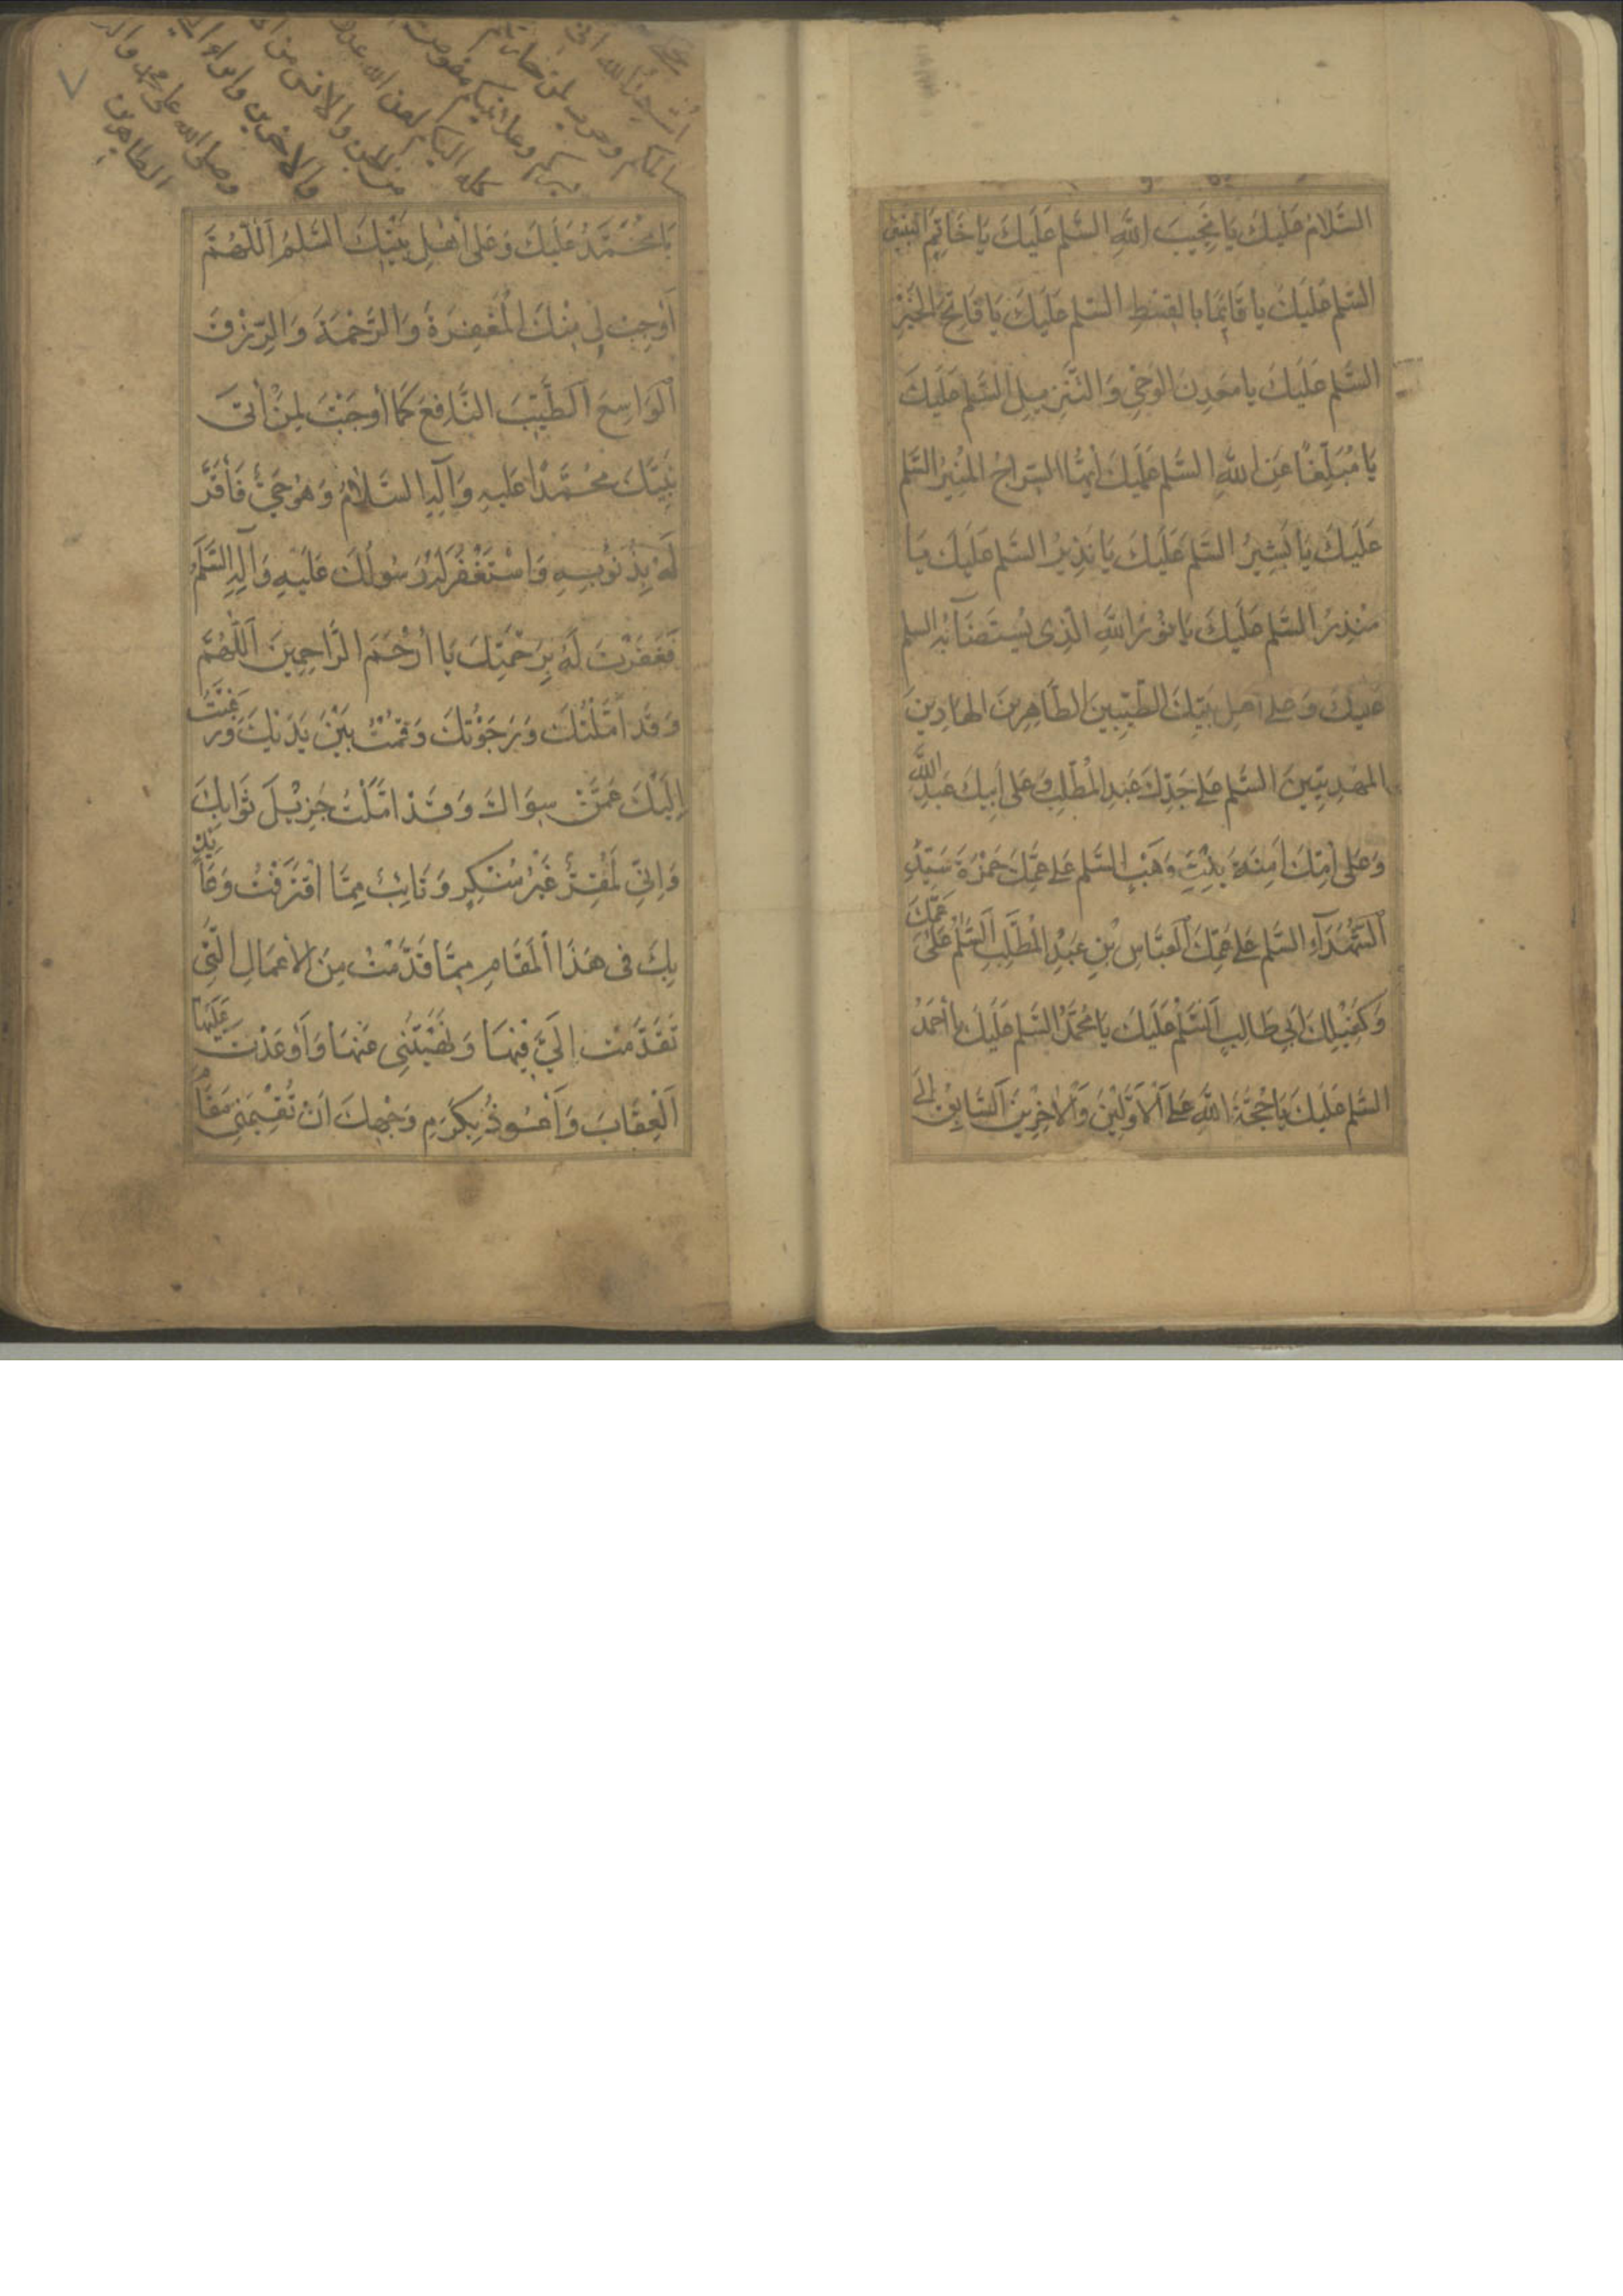 السَّلامُ عَلَيكَ يَا نَجِيبَ اللهِ السَّلم عَلَيكَ يَا خَاتِمَ النَّبِيّن
السَّلم عَلَيكَ يا قَائِمًا بالقِسْطِ السَّلم عَلَيكَ يَا فَاتِحَ الخَيْرِ
السَّلم عَلَيكَ يا مَعدِنَ الوَحْيِ وَالتَّنْزِيلِ السَّلم عَلَيكَ
يَا مُبَلِّغًا عَنِ اللهِ السَّلم عَلَيكَ أَيُّهَا السِّرَاجُ المُنِيرُ السَّلم
عَلَيكَ يَا بَشِيرُ السَّلم عَلَيكَ يَا نَذِيرُ السَّلم عَلَيكَ يَا
مُنْذِرُ السَّلم عَلَيكَ يا نُورَ اللهِ الَّذِى يُسْتَضَآءُ بِهِ السلم
عَلَيكَ وَعَلى أهلِ بَيْتِكَ الطَّيِّبِينَ الطَّاهِرِينَ الهَادِينَ
المَهْدِيِّينَ السَّلم عَلى جَدِّكَ عَبْدِ المُطَّلِبِ وَعَلى أَبِيكَ عَبْدِ اللهِ
وَعَلى أُمِّكَ آمِنَةَ بِنْتِ وَهَبٍ السَّلم عَلى عَمِّكَ حَمْزَةَ سَيِّدِ
الشُّهَدَآءِ السَّلم عَلى عَمِّكَ العَبَّاسِ بْنِ عَبْدِ المُطَّلِبِ السَّلمُ عَلى عَمِّكَ
وَكَفِيلِكَ أَبِي طَالِبٍ السَّلمُ عَلَيكَ يَا مُحَمَّدُ السَّلم عَلَيكَ يا أَحمَدُ
السَّلم عَلَيكَ يَا حُجَّةَ اللهِ عَلى الأَوَّلِينَ وَالآخِرِينَ السَّابِقُ إلى
يَا مُحَمَّدُ عَلَيكَ وَعَلى أَهْلِ بَيْتِكَ السَّلمُ اَللّٰهُمَّ
أَوجِبْ لِي مِنْكَ المَغْفِرَةَ وَالرَّحْمَةَ وَالرِّزْقَ
الوَاسِعَ الطَّيِّبَ النَّافِعَ كَمَا أَوجَبْتَ لِمَنْ أَتىَ
نَبِيَّكَ مُحَمَّدًا عَلَيهِ وَآلِهِ السَّلَامُ وَهُوَ حَيٌّ فَأَقَرَّ
لَهُ بِذُنُوبِهِ وَاسْتَغْفَرَ لَهُ رَسُولُكَ عَلَيهِ وَآلِهِ السَّلَمُ
فَغَفَرْتَ لَهُ بِرَحْمَتِكَ يَا أَرْحَمَ الرَّاحِمِينَ اَللّٰهُمَّ
وَقَد أَمَّلْتُكَ وَرَجَوْتُكَ وَقُمْتُ بَيْنَ يَدَيْكَ وَرَغِبْتُ
إِلَيْكَ عَمَّنْ سِوَاكَ وَقَدْ أَمَّلْتُ جَزِيلَ ثَوَابِكَ
وَإِنِّي لَمُقِرٌّ غَيْرُ مُنْكِرٍ وَتَائِبٌ مِمَّا اقْتَرَفْتُ وَعَائِذٌ
بِكَ في هَذَا المَقَامِ مِمَّا قَدَّمْتُ مِنَ الأعمَالِ الَّتِي
تَقَدَّمْتَ إِلَيَّ فِيهَا وَنَهَيْتَنِي عَنْهَا وَأَوعَدْتَ عَلَيهَا
العِقَابَ وَأَعُوذُ بِكَرَمِ وَجْهِكَ أَنْ تُقِيمَنِي مَقَامَ